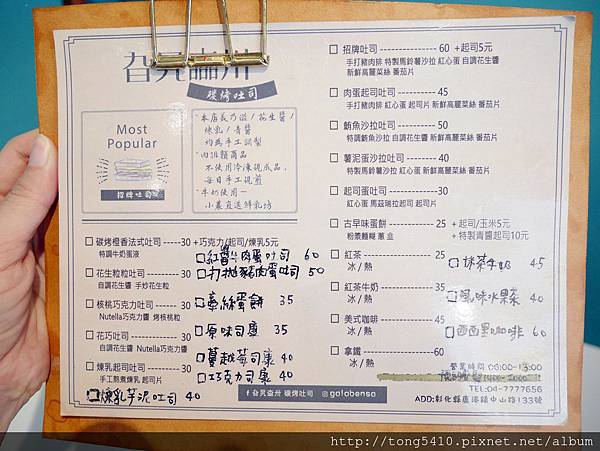 碳烤吐司
*本店美乃滋/花生醬/
煉乳/青醬
均為手工調製
*肉排類商品
不使用冷凍現成品,
每日手工現煎
*牛奶使用-
小農直送鮮乳坊
Most
Popular
招牌吐司
碳烤橙香法式吐司-----30 +巧克力/起司/煉乳5元
特調牛奶蛋液
紅醬肉蛋吐司 60
花生粒粒吐司----------30
自調花生醬 手炒花生粒
打拋豬肉蛋吐司 50
核桃巧克力吐司--------30
Nutella巧克力醬 烤核桃粒
蔥絲蛋餅 35
花巧吐司---------------30
自調花生醬 Nutella巧克力醬
原味司康 35
煉乳起司吐司----------30
手工熬煮煉乳 起司片
蔓越莓司康 40
巧克力司康 40
煉乳芋泥吐司 40
招牌吐司 --------------- 60 +起司5元
手打豬肉排 特製馬鈴薯沙拉 紅心蛋 自調花生醬
新鮮高麗菜絲 番茄片
肉蛋起司吐司----------45
手打豬肉排 紅心蛋 起司片 新鮮高麗菜絲 番茄片
鮪魚沙拉吐司----------50
特調鮪魚沙拉 自調花生醬 新鮮高麗菜絲 番茄片
薯泥蛋沙拉吐司--------40
特製馬鈴薯沙拉 紅心蛋 新鮮高麗菜絲 番茄片
起司蛋吐司-------------30
紅心蛋 馬茲瑞拉起司 起司片
古早味蛋餅------------- 25 +起司/玉米5元
粉漿麵糊 蔥 韭 +特製青醬起司10元
紅茶--------------------25
冰/熱
抹茶牛奶 45
紅茶牛奶---------------35
冰/熱
風味水果茶 40
美式咖啡---------------45
冰/熱
西西里咖啡 60
拿鐵--------------------60
冰/熱
營業時間 06:00-13:00
TEL:04-7777656
ADD:彰化縣鹿港鎮中山路133號
旮旯呇卅 碳烤吐司 galabensa
http://tong5410.pixnet.net/album